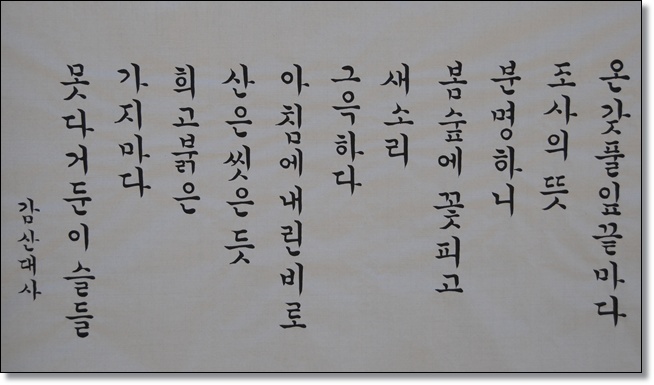 온갖풀잎끝마다
조사의뜻
분명하니
봄숲에꽃피고
새소리
그윽하다
아침에내린비로
산은씻은듯
희고붉은
가지마다
못다거둔이슬들
감산대사